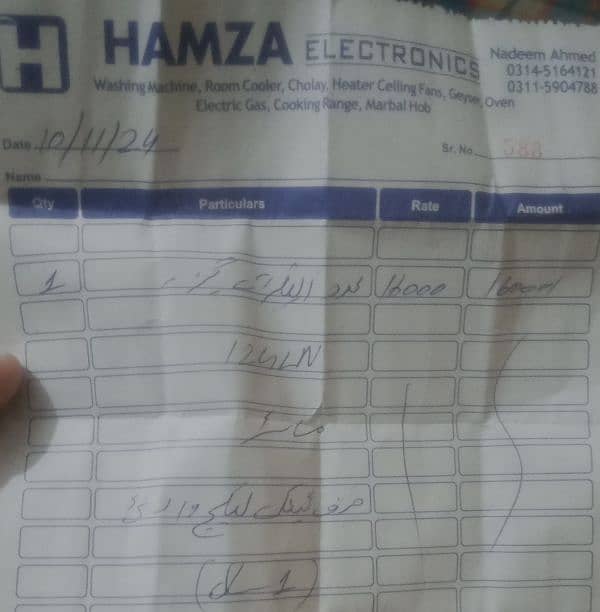 H HAMZA ELECTRONICS
Nadeem Ahmed
0314-5164121
0311-5904788
Washing Machine, Room Cooler, Cholay, Heater Celling Fans, Geyser, Oven
Electric Gas, Cooking Range, Marbal Hob
Date 10/11/24
Sr. No. 588
Name
Qty Particulars Rate Amount
1 عدد 16000 16000
صرف ٹینک لیکج وارنٹی
(1 سال)